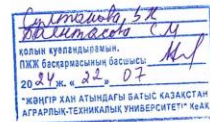 Султанова, З.К
Баянтасова С.М
қолын куәландырамын.
ПЖЖ басқармасының басшысы
2024 ж. « 22 » 07
"ЖӘҢГІР ХАН АТЫНДАҒЫ БАТЫС ҚАЗАҚСТАН
АГРАРЛЫҚ-ТЕХНИКАЛЫҚ УНИВЕРСИТЕТІ" КеАҚ